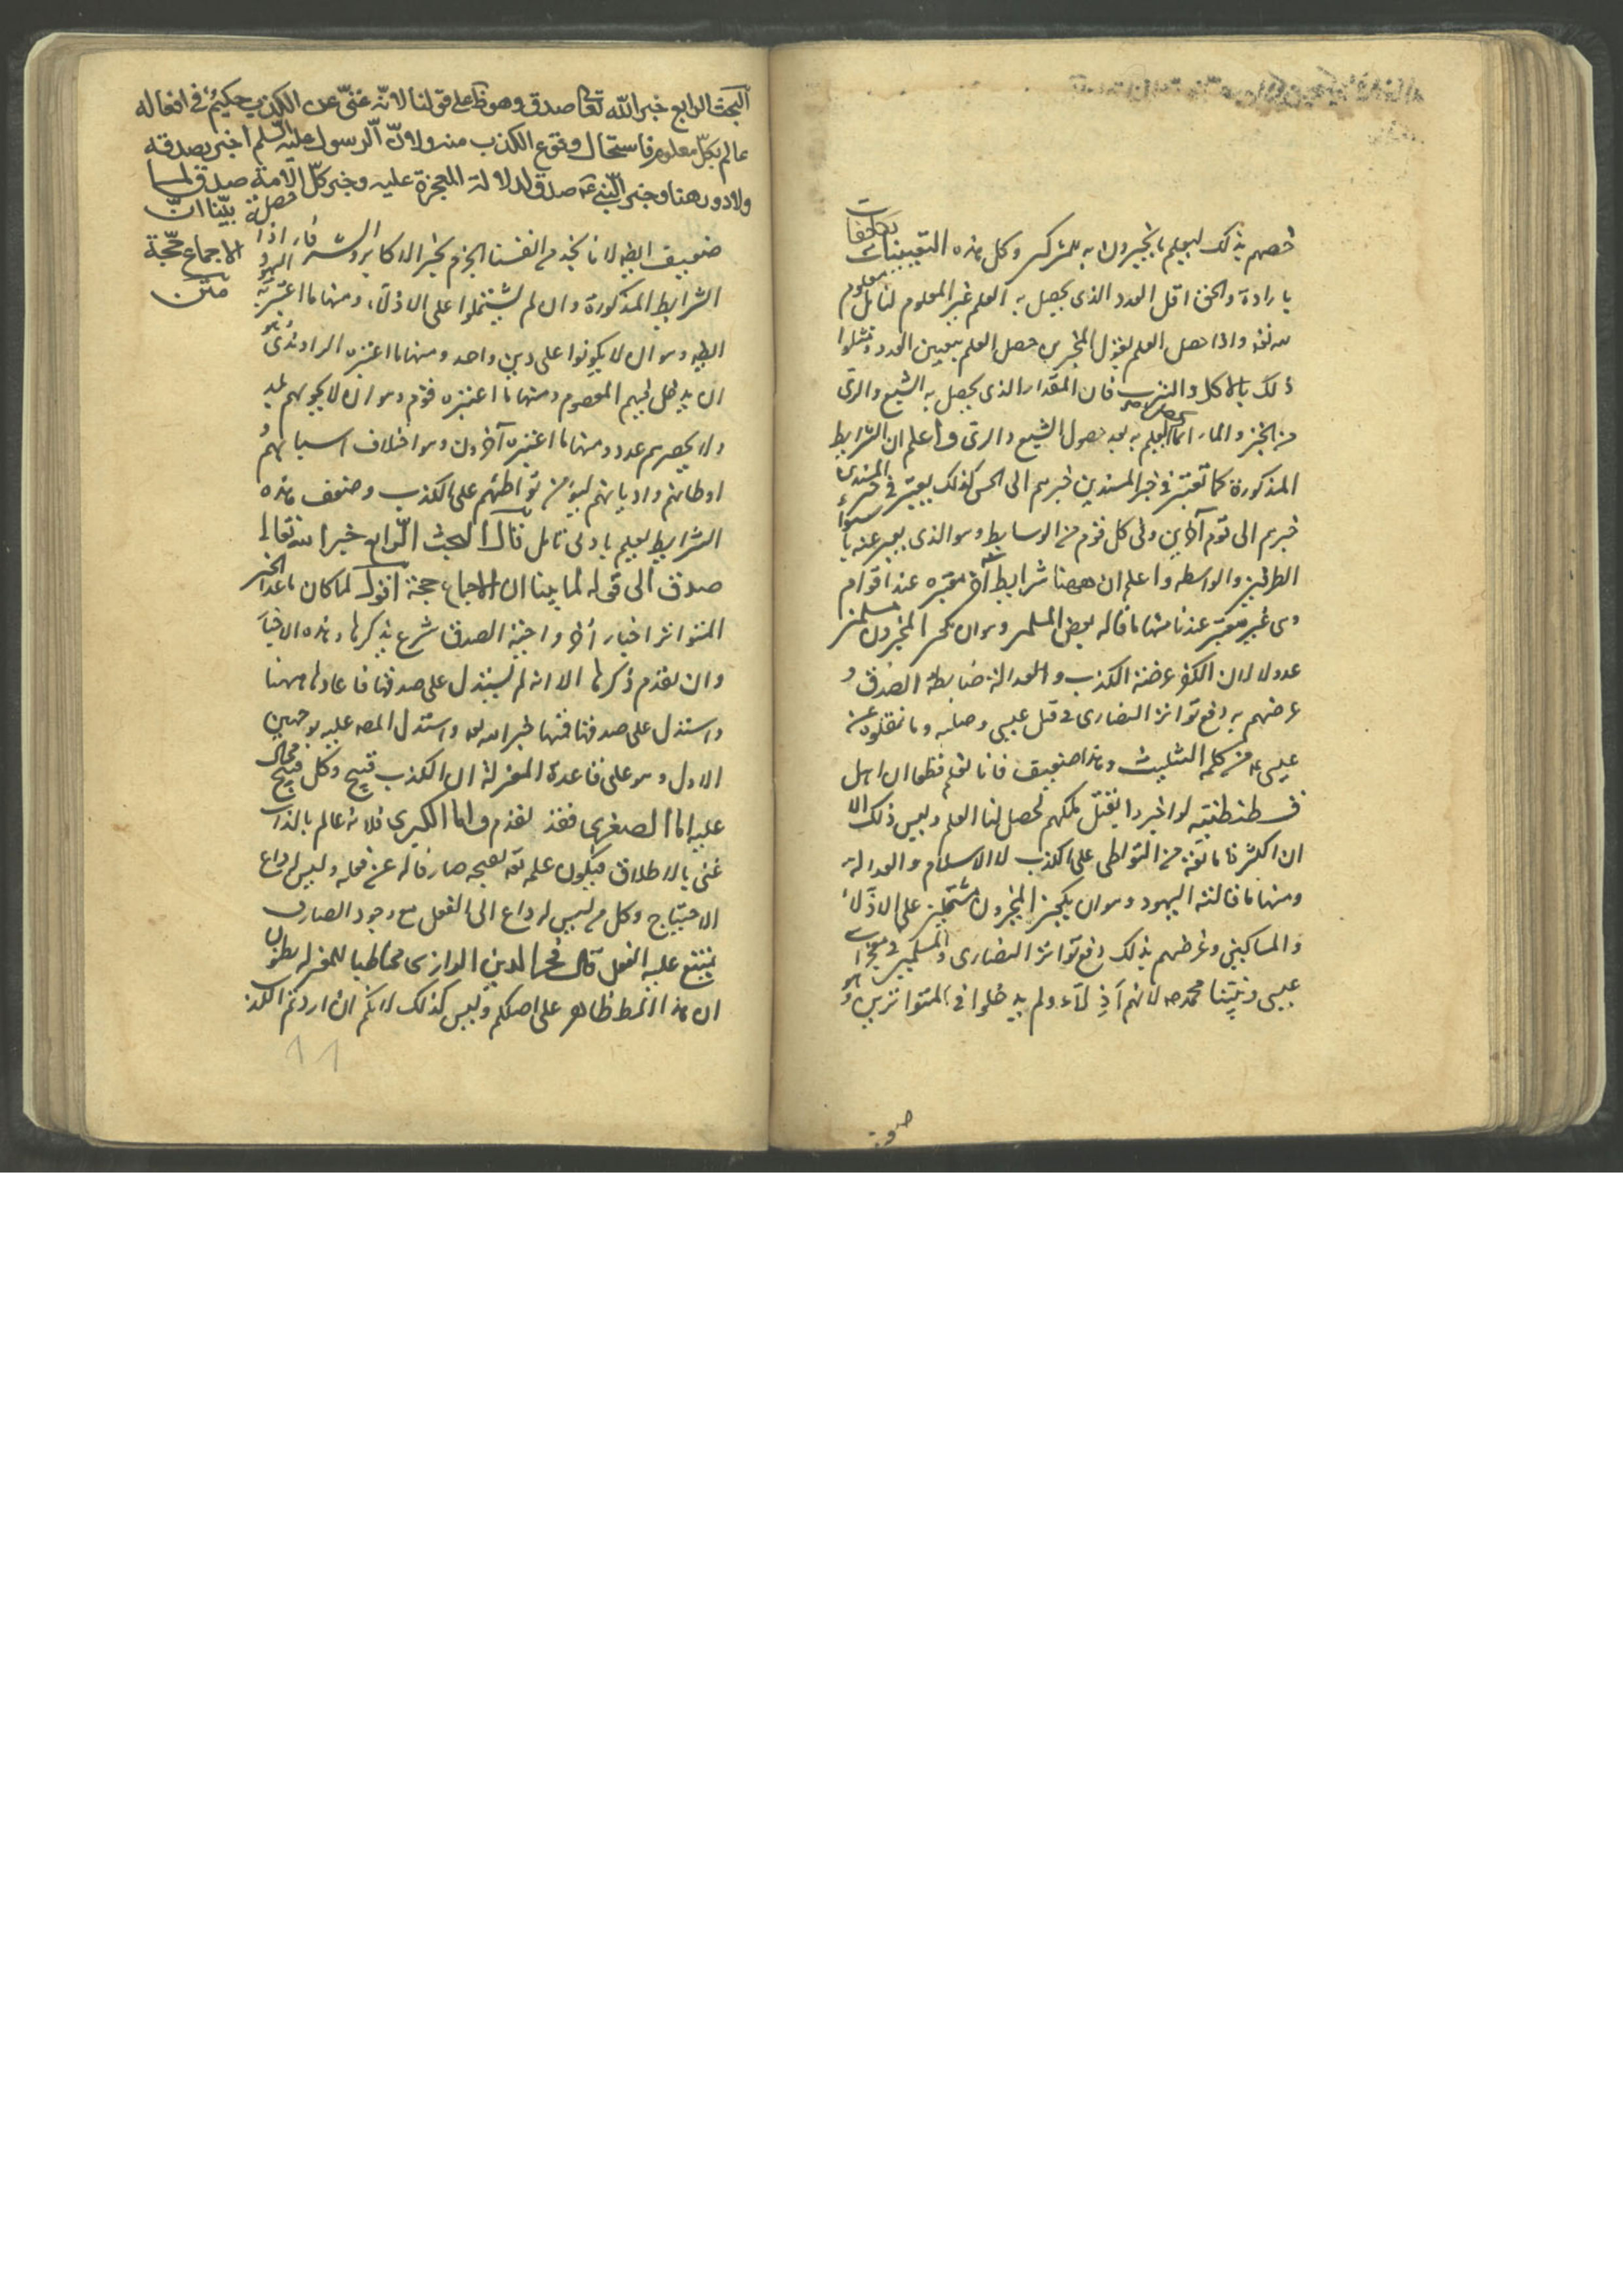 خصهم بذلك ليعلم ما يخبرون به للمشركين وكل هذه التعيينات
بارادة والحق اقل العدد الذى يحصل به العلم غير المعلوم لنا بل معلوم
لله تعه واذا حصل العلم بقول المخبرين حصل العلم بتعيين العدد ومثلوا
ذلك بالاكل والشرب فان المقدار الذى يحصل به الشبع والرى
من الخبز والماء انما يعلم به بعد حصول الشبع والرى واعلم ان الشرايط
المذكورة كما تعتبر فى خبر المسندين خبرهم الى الحس كذلك يعتبر فى خبر المسندين
خبرهم الى قوم آخرين وفى كل قوم من الوسايط وهو الذى يعبر عنه باستواء
الطرفين والواسطه واعلم ان ههنا شرايط أخر معتبره عند اقوام
وهى غير معتبر عندنا منها ما قاله بعض المسلمين وهو ان يكون المخبرون مسلمين
عدولا لان الكفر عرضة الكذب والعدالة ضابطة الصدق و
غرضهم به دفع تواتر النصارى فى قتل عيسى وصلبه وما نقلوه عن
عيسى عم من كلمة التثليث وهذا ضعيف فانا نعلم قطعا ان اهل
قسطنطنيه لو اخبروا بقتل ملكهم لحصل لنا العلم وليس ذلك الا
ان الكثرة مانعة من التواطى على الكذب لا الاسلام والعدالة
ومنها ما قالته اليهود وهو ان يكون المخبرون مشتملين على الاذلاء
والمساكين وغرضهم بذلك دفع تواتر النصارى والمسلمين فى معجزات
عيسى ونبينا محمد صه لانهم اذلاء ولم يدخلوا فى المتواترين وهو
البحث الرابع خبر الله تعا صدق وهو ظ على قولنا لانه غنى عن الكذب حكيم فى افعاله
عالم بكل معلوم فاستحال وقوع الكذب منه ولان الرسول عليه السلم اخبر بصدقه
ولا دور هنا وخبر النبى عم صدق لدلالة المعجزة عليه وخبر كل الامة صدق لما
بينا ان
الاجماع حجة
متن
ضعيف ايضه لانا نجد من انفسنا الجزم بخبر الاكابر والشرفاء اذا
الشرايط المذكورة وان لم يشتملوا على الاذلاء ومنها ما اعتبرته اليهود
ايضه وهو ان لا يكونوا على دين واحد ومنها ما اعتبره الراوندى وهو
ان يدخل فيهم المعصوم ومنها ما اعتبره قوم وهو ان لا يحويهم بلد
ولا يحصرهم عدد ومنها ما اعتبره آخرون وهو اختلاف انسابهم و
اوطانهم واديانهم ليؤمن تواطئهم على الكذب وضعف هذه
الشرايط يعلم بادنى تامل قال البحث الرابع خبر الله تعالى
صدق الى قوله لما بينا ان الاجماع حجة اقول لما كان ماعدا الخبر
المتواتر اخبار أخر واجبة الصدق شرع بذكرها وهذه الاخبار
وان تقدم ذكرها الا انه لم يستدل على صدقها فاعادها ههنا
واستدل على صدقها فمنها خبر الله تعه واستدل المصه عليه بوجهين
الاول وهو على قاعدة المعتزلة ان الكذب قبيح وكل قبيح محال
عليه اما الصغرى فقد تقدم واما الكبرى فلانه عالم بالذات
غنى بالاطلاق فيكون علمه تعه بقبحه صارفا له عن فعله وليس له داع
الاحتياج وكل من ليس له داع الى الفعل مع وجود الصارف
يمتنع عليه الفعل قال فخر الدين الرازى مخاطبا للمعتزله
ان هذا النمط ظاهر على اصلكم وليس كذلك لانكم ان اردتم الكذب